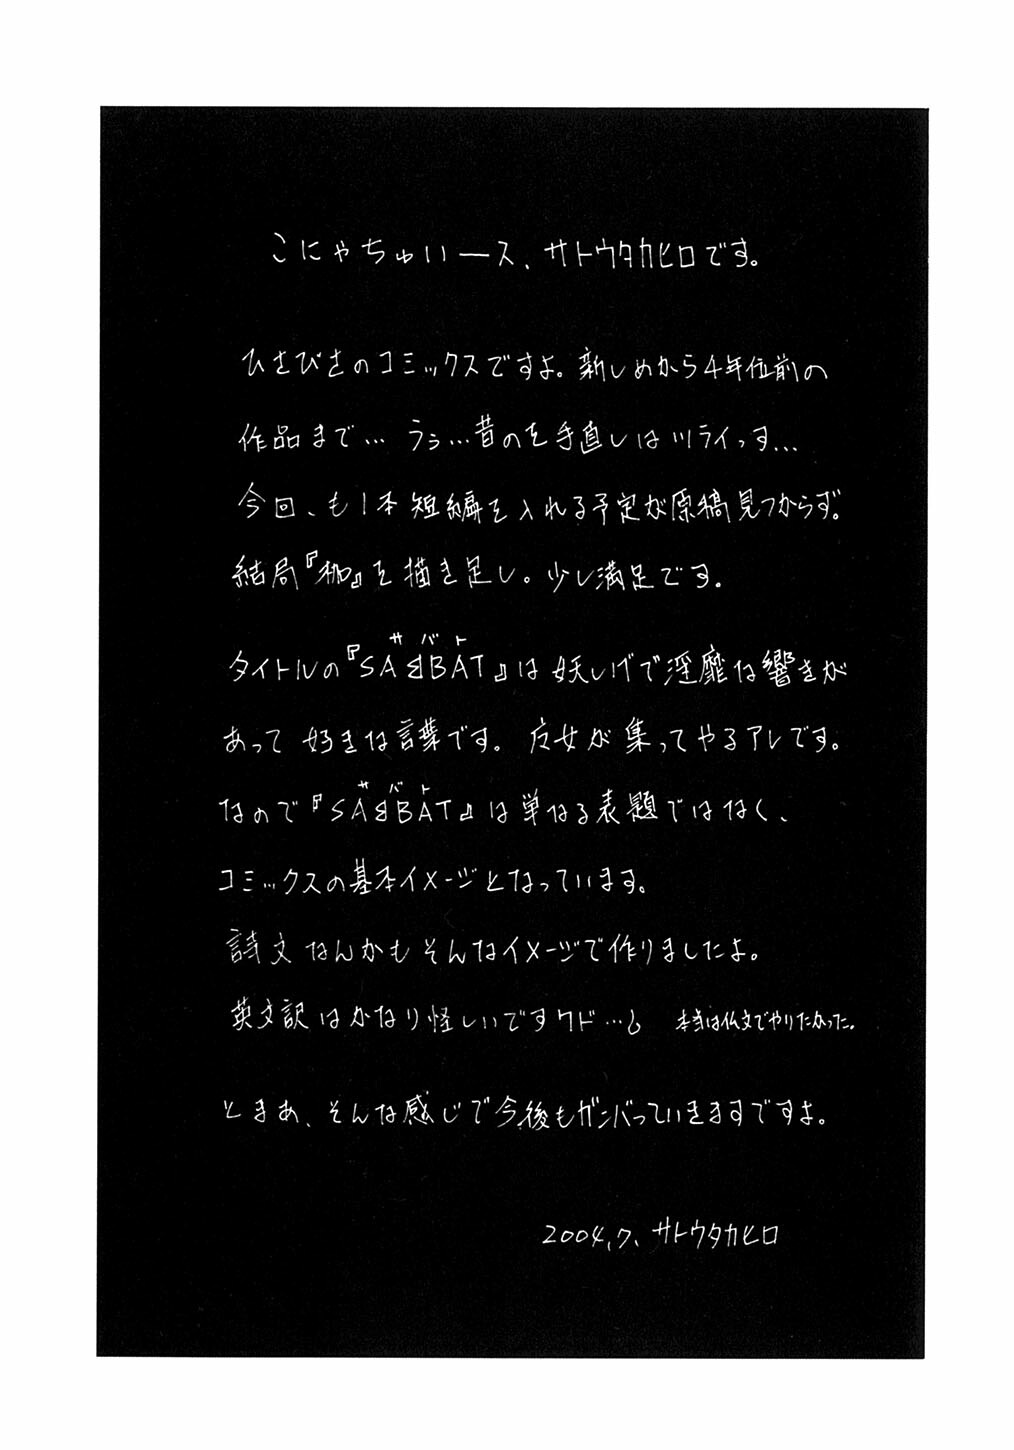 こにゃちゅいース、サトウタカヒロです。
ひさびさのコミックスですよ。新しめから4年位前の
作品まで… うぅ…昔のを手直しはツライっす…
今回、も1本短編を入れる予定が原稿見つからず。
結局『枷』を描き足し。少し満足です。
サバト
タイトルの『SABBAT』は妖しげで淫靡な響きが
あって好きな言葉です。魔女が集ってやるアレです。
サバト
なので『SABBAT』は単なる表題ではなく、
コミックスの基本イメージとなっています。
詩文なんかもそんなイメージで作りましたよ。
英文訳はかなり怪しいですケド… 本当は仏文でやりたかった。
とまあ、そんな感じで今後もガンバっていきますですよ。
2004,7、サトウタカヒロ